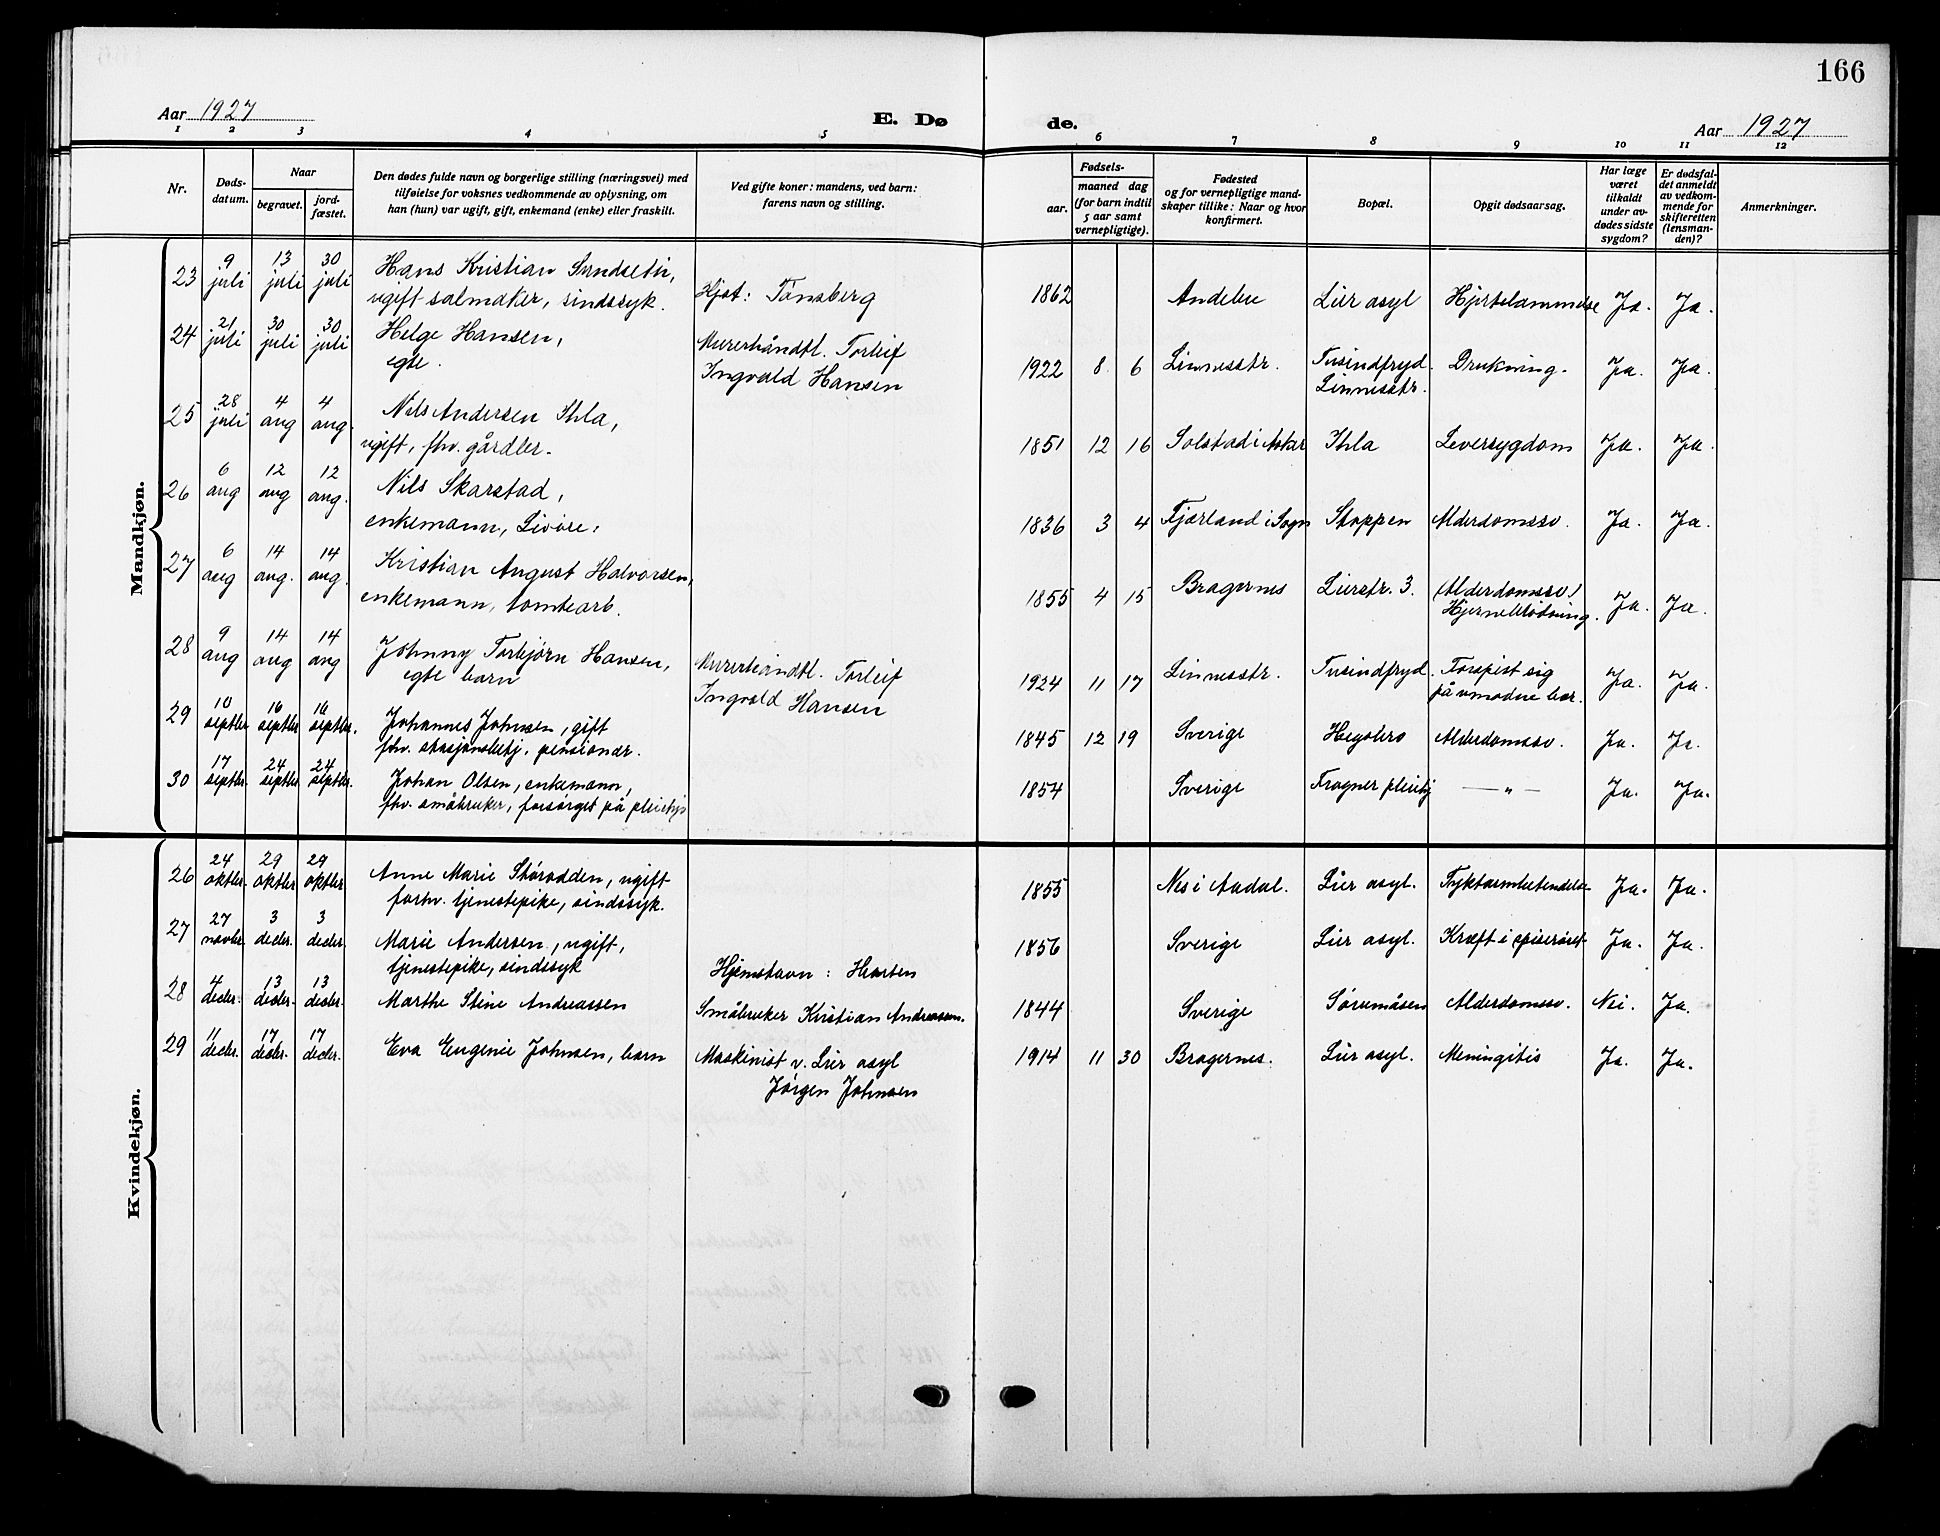 166
Aar 1927
E. Dø
de.
Aar 1927
1 2 3 4 5 6 7 8 9 10 11 12
Nr.
Døds-
datum.
Naar
begravet.
jord-
fæstet.
Den dødes fulde navn og borgerlige stilling (næringsvei) med
tilføielse for voksnes vedkommende av oplysning, om
han (hun) var ugift, gift, enkemand (enke) eller fraskilt.
Ved gifte koner: mandens, ved barn:
farens navn og stilling.
Fødsels-
aar.
maaned dag
(for barn indtil
5 aar samt
vernepligtige).
Fødested
og for vernepligtige mand-
skaper tillike: Naar og hvor
konfirmert.
Bopæl.
Opgit dødsaarsag.
Har læge
været
tilkaldt
under av-
dødes sidste
sygdom?
Er dødsfal-
det anmeldt
av vedkom-
mende for
skifteretten
(lensman-
den)?
Anmerkninger.
Mandkjøn.
23 9 juli 13 juli 30 juli Hans Kristian Sundseth,
ugift salmaker, sindssyk. Hjst: Tønsberg 1862 Andebu Lier asyl Hjertelammelse Ja. Ja.
24 21 juli 30 juli 30 juli Helge Hansen,
egte. Murerhåndtl. Torleif
Ingvald Hansen 1922 8 6 Linnesstr. Tusindfryd.
Linnesstr. Drukning. Ja. Ja.
25 28 juli 4 aug 4 aug. Nils Andersen Ihla,
ugift, fhv. gårdbr. 1851 12 16 Solstad i Asker Ihla Leversygdom Ja. Ja.
26 6 aug 12 aug 12 aug. Nils Skarstad,
enkemann, Livøre. 1836 3 4 Fjærland i Sogn Stoppen Alderdomssv. Ja. Ja.
27 6 aug 14 aug. 14 aug. Kristian August Halvorsen,
enkemann, tomtearb. 1855 4 15 Bragernes Lierstr. 3. (Alderdomssv.)
Hjerneblødning. Ja. Ja.
28 9 aug 14 aug 14 aug Johnny Torbjørn Hansen,
egte barn Murerhåndtl. Torleif
Ingvald Hansen 1924 11 17 Linnesstr. Tusindfryd. Forspist sig
på umodne bær. Ja. Ja.
29 10 septbr 16 septbr 16 septbr. Johannes Johnsen, gift
fhv. stasjonsbetj. pensionær. 1845 12 19 Sverige Hegsbro Alderdomssv. Ja. Ja.
30 17 septbr. 24 septbr. 24 septbr. Johan Olsen, enkemann,
fhv. småbruker, forsørget på pleiehj. 1854 Sverige Frogner pleiehj — " — Ja. Ja.
Kvindekjøn.
26 24 oktbr. 29 oktbr 29 oktbr Anne Marie Størodden, ugift
forhv. tjenestepike, sindssyk. 1855 Nes i Aadal. Lier asyl. Tyktarmbetendelse Ja. Ja.
27 27 novbr. 3 decbr. 3 decbr. Marie Andersen, ugift,
tjenestepike, sindssyk Hjemstavn: Hurten 1856 Sverige Lier asyl. Kræft i spiserøret Ja. Ja.
28 4 decbr. 13 decbr. 13 decbr. Marthe Stine Andreassen Småbruker Kristian Andreassen. 1844 Sverige Sørumåsen Alderdomssv. Nei. Ja.
29 11 decbr. 17 decbr. 17 decbr. Eva Eugenie Johnsen, barn Maskinist v. Lier asyl
Jørgen Johnsen 1914 11 30 Bragernes. Lier asyl. Meningitis Ja. Ja.